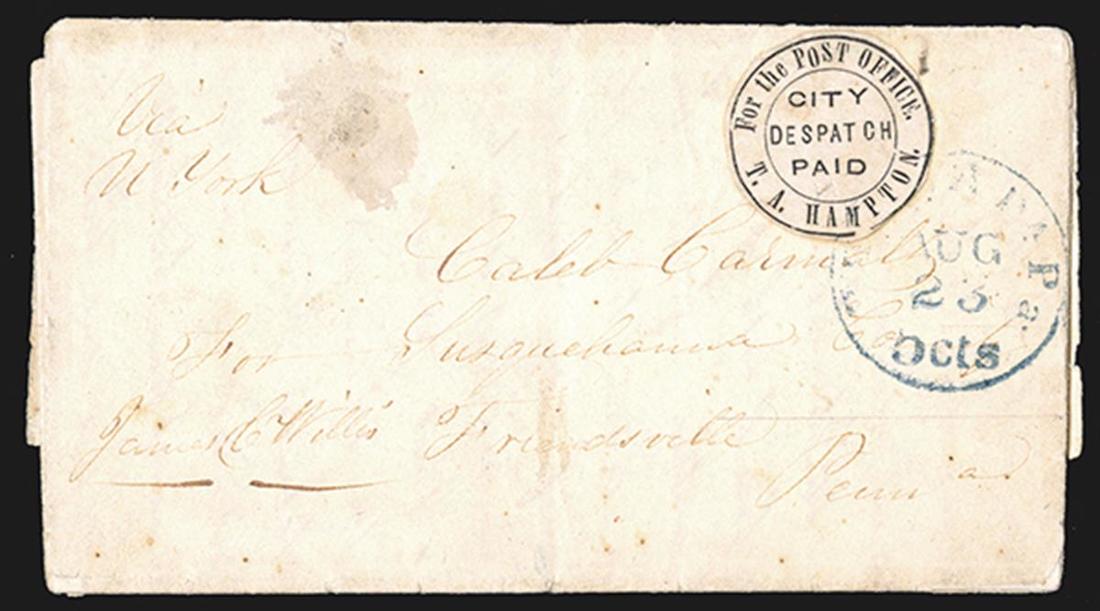 Via
N. York
For the POST OFFICE.
CITY
DESPATCH
PAID
T. A. HAMPTON.
Caleb Carmalt
AUG
23
5cts
For Susquehanna County
James C Willis Friendsville
Penn a